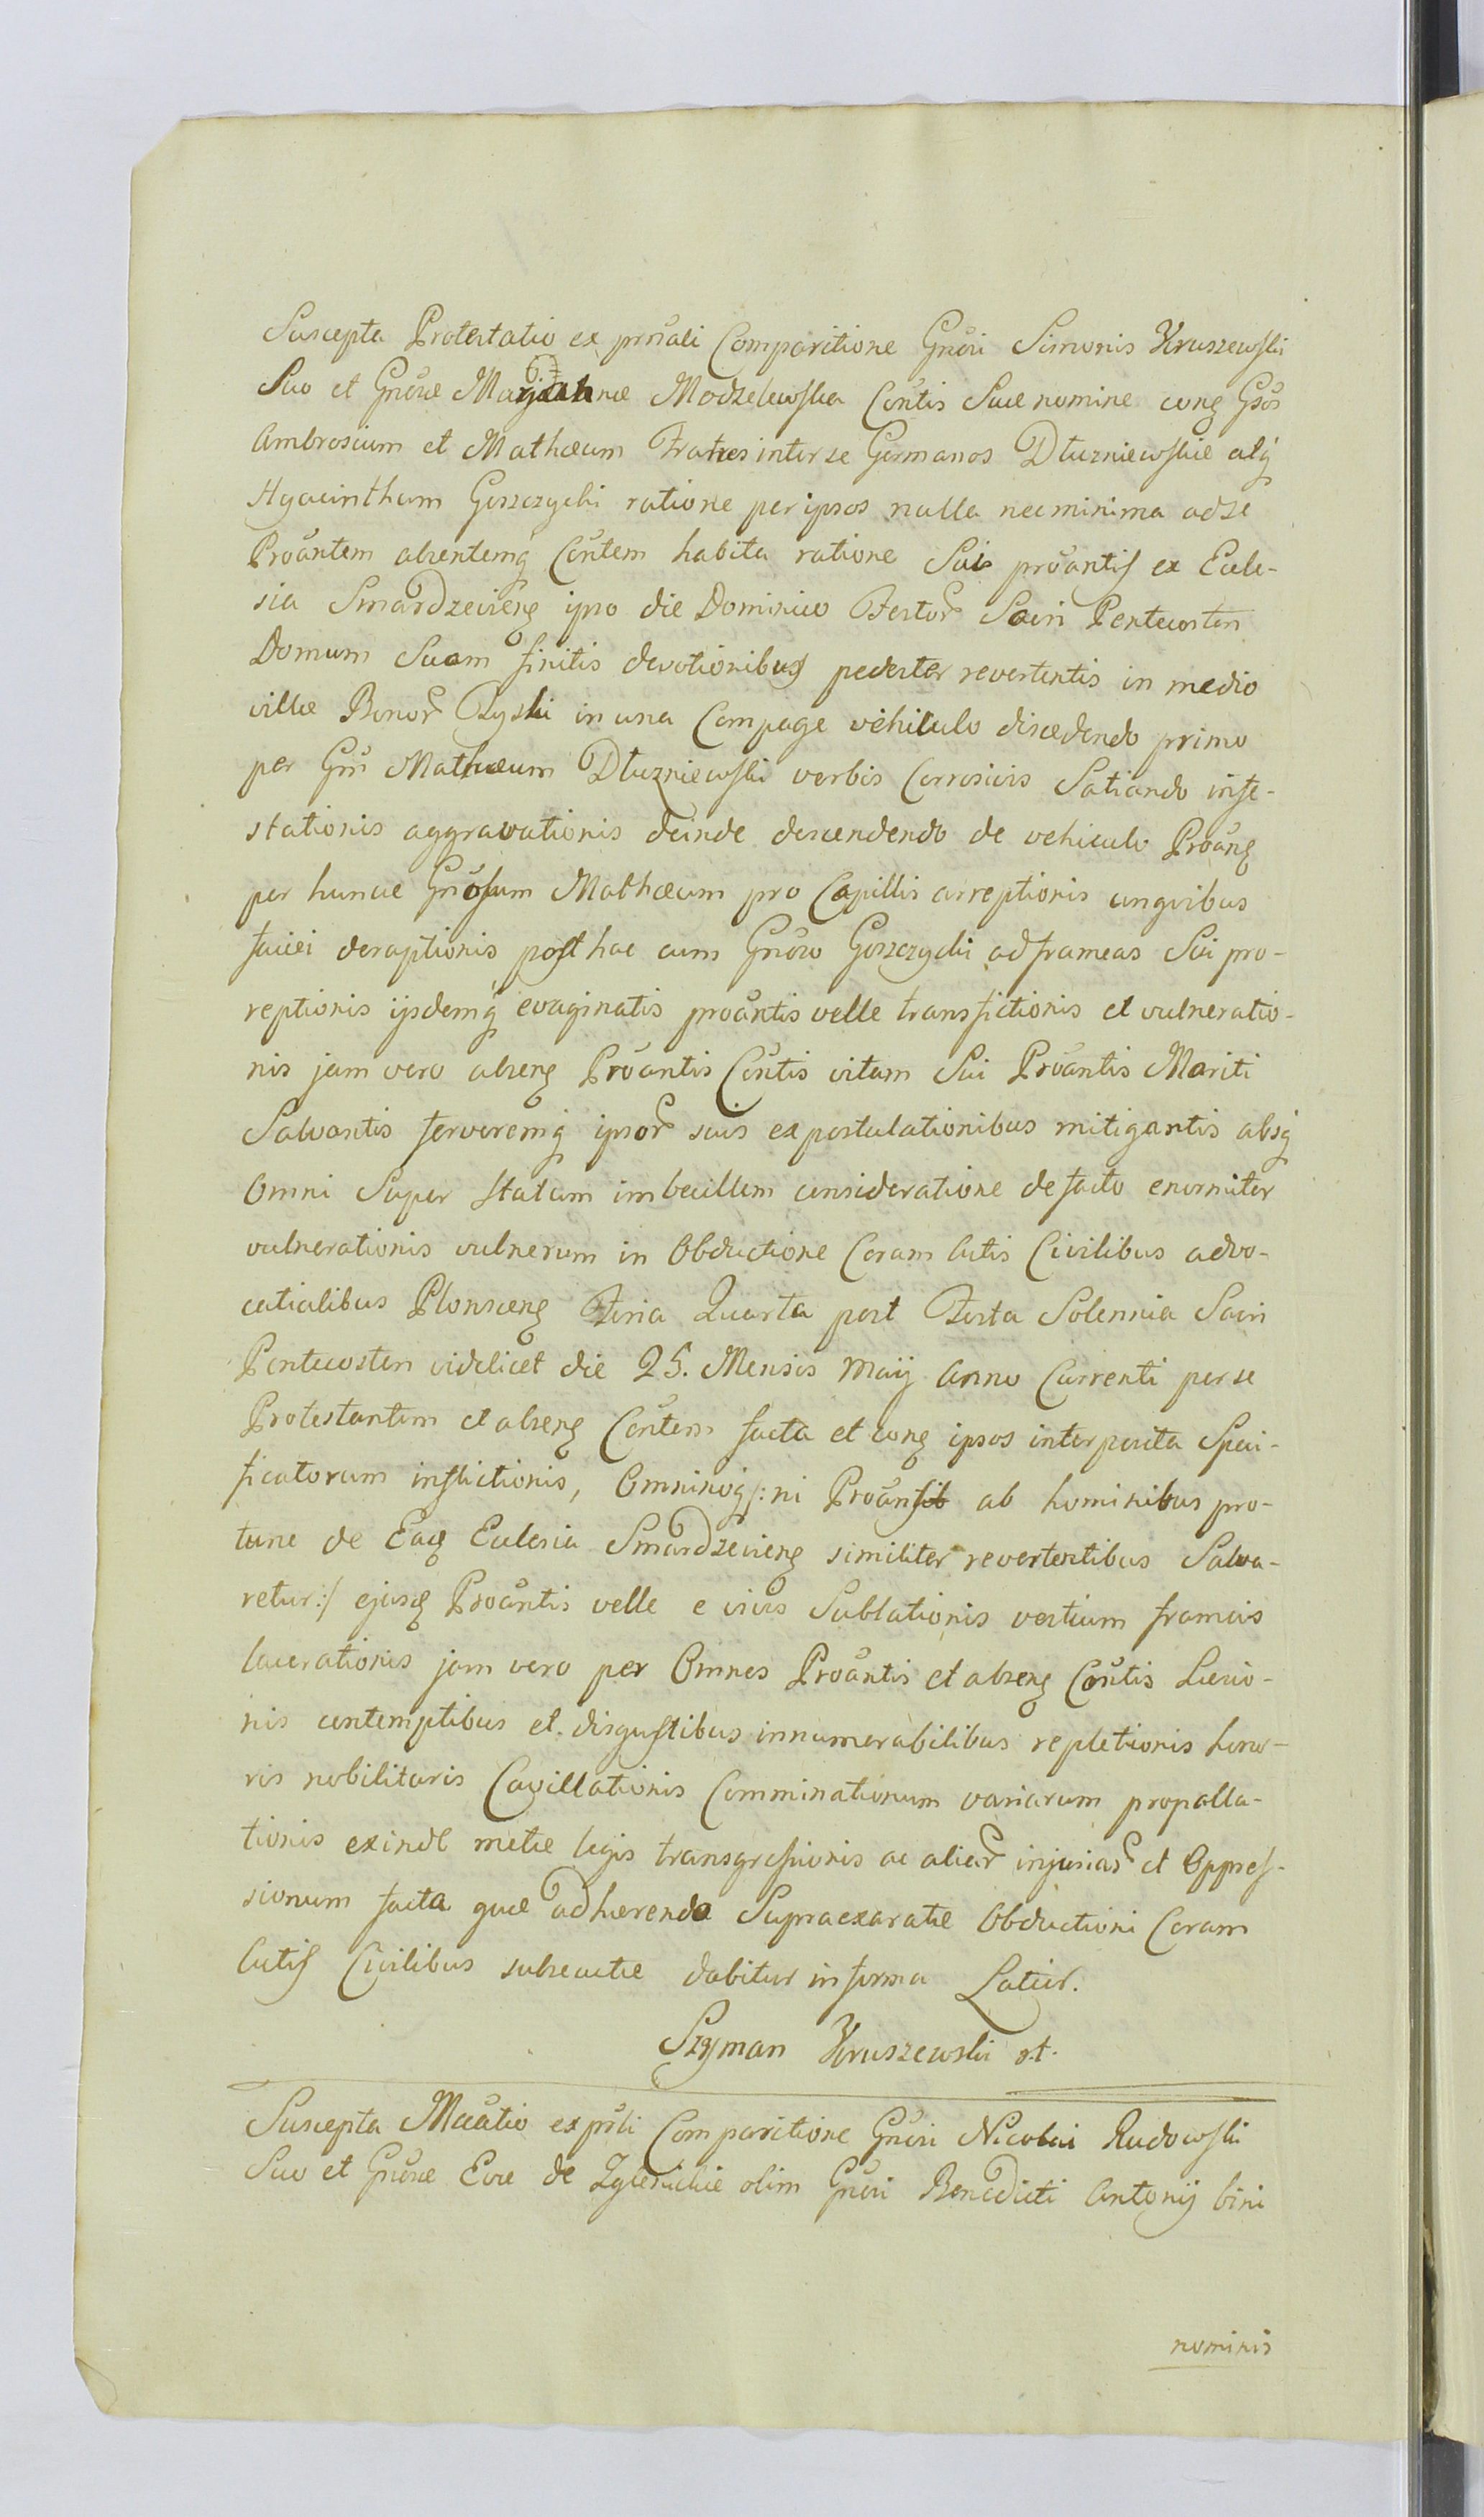 Suscepta Protestatio ex prnali Comparitione Gnosi Simonis Kruszewski
Suo et Gnosæ Mariannæ Modzelewska Contis Suæ nomine conq Gsos
Ambrosium et Mathæum Fratres inter se Germanos Dłuzniewskie atq
Hyacinthum Goszczycki ratione per ipsos nulla nec minima ad se
Proantem absentemq Contem habita ratione Sui proantis ex Eccle-
sia Smardzeviens ipso die Dominico Festor Sacri Pentecosten
Domum Suam finitis devotionibus pedester revertentis in medio
villæ Bonor Ryski in una Compage vehiculo discedendo primo
per Gm Mathæum Dłuzniewski verbis Corrosivis Satiando infe-
stationis aggravationis deinde descendendo de vehiculo Proang
per hunce Gnosum Mathæum pro Capillis arreptionis ungvibus
faciei deraptionis post hac cum Gnoso Goszczycki ad frameas Sui pro-
reptionis ijsdemq evaginatis proantis velle transfictionis et vulneratio-
nis jam vero absens Proantis Contis vitam Sui Proantis Mariti
Salvantis fervoremq ipsor suis expostulationibus mitigantis absq
Omni Super Statum imbecillem consideratione de facto enormiter
vulnerationis vulnerum in Obductione Coram Actis Civilibus advo-
catialibus Plonscens Feria Quarta post Festa Solennia Sacri
Pentecosten videlicet die 25. Mensis Maij Anno Currenti per se
Protestantem et absens Contem facta et conq ipsos interposita Speci-
ficatorum inflictionis, Omninoq /: ni Proans ab hominibus pro-
tunc de Eaq Ecclesia Smardzeviens similiter revertentibus Salva-
retur :/ ejusq Proantis velle e vivis Sublationis vestium frameis
lacerationis jam vero per Omnes Proantis et absens Contis Læsio-
nis contemptibus et disgustibus innumerabilibus repletionis hono-
ris nobilitaris Cavillationis Comminationum variarum propalla-
tionis exinde metæ legis transgressionis ac aliar injuriar et Oppres-
sionum facta quæ adhærendo Supraexaratæ Obductioni Coram
Actis Civilibus subsecutæ dabitur in forma Latior.
Szyman Kruszewski st.
Suscepta Maatio ex prli Comparitione Gnosi Nicolai Rudowski
Suo et Gnosæ Evæ de Zglenickie olim Gnosi Benedicti Antonij bini
nominis